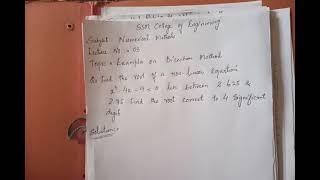 SSM College of Engineering
Subject: Numerical Methods
Lecture No: 03
Topic: Example on Bisection Method
Q: Find the root of a non-linear equation
x³-4x-9=0 lies between 2.625 &
2.75 find the root correct to 4 significant
digit
Solution:-